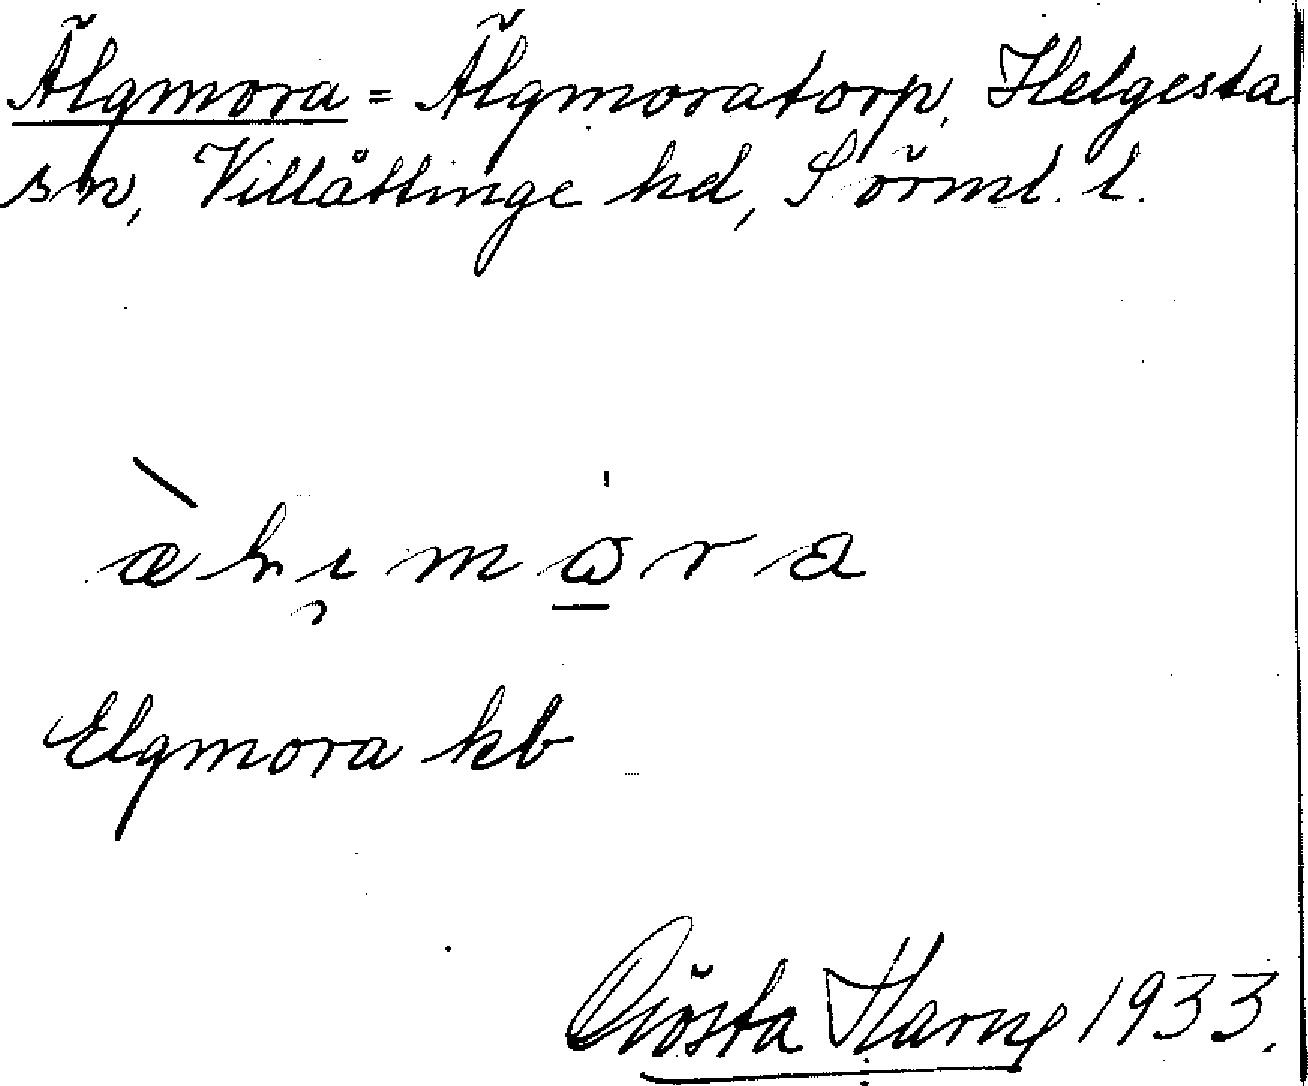 Älgmora = Älgmoratorp, Helgesta
sn, Villåttinge hd, Sörml. l.
Elgmora kb
Gösta Harne 1933.